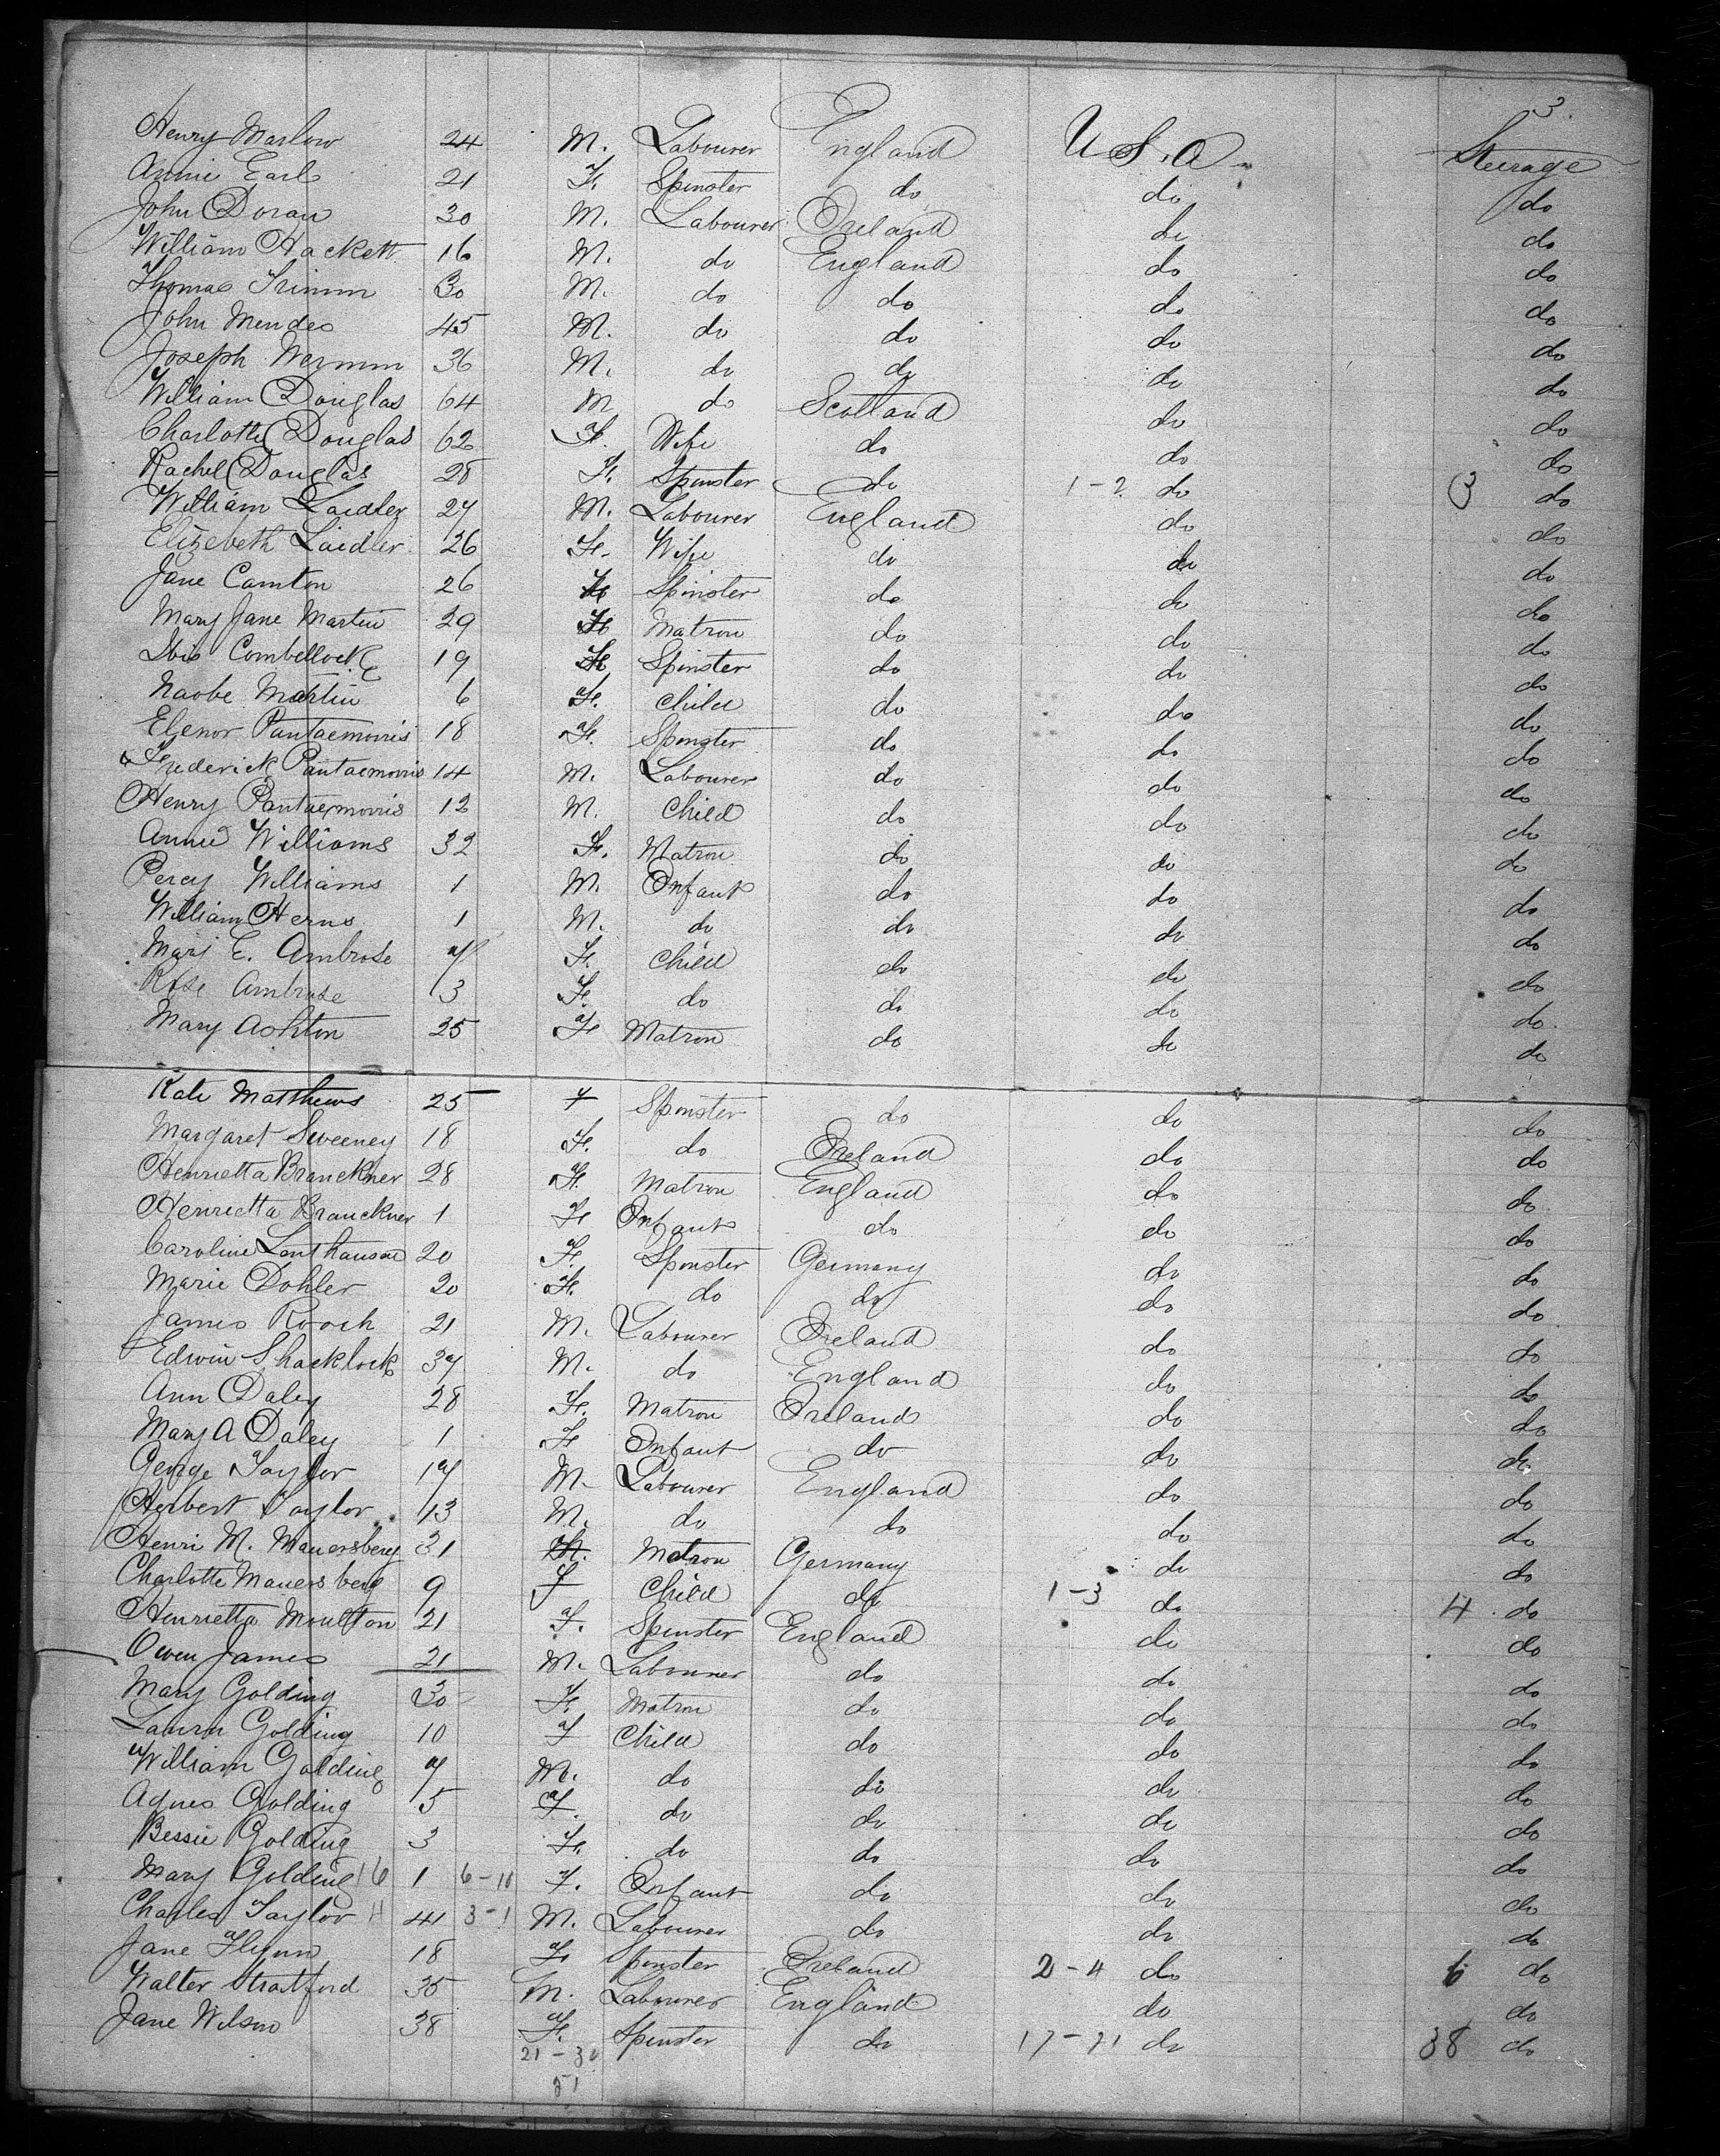 3.
Henry Marlow 24 M. Labourer England U.S.A. Steerage
Annie Earl 21 F. Spinster do do do
John Doran 30 M. Labourer Ireland do do
William Hackett 16 M. do England do do
Thomas Trimm 30 M. do do do do
John Mendes 45 M. do do do do
Joseph 36 M. do do do do
William Douglas 64 M do Scotland do do
Charlotte Douglas 62 F. Wife do do do
Rachel Douglas 28 F. Spinster do 1-2 do 3 do
William Laidler 27 M. Labourer England do do
Elizebeth Laidler 26 F. Wife do do do
Jane Camton 26 F Spinster do do do
Mary Jane Martin 29 F Matron do do do
Combellock 19 F Spinster do do do
Naobe Martin 6 F. Child do do do
Elenor Pantaemorris 18 F. Spinster do do do
Frederick Pantaemorris 14 M. Labourer do do do
Henry Pantaemorris 12 M. Child do do do
Annie Williams 32 F. Matron do do do
Percy Williams 1 M. Infant do do do
William Herns 1 M. do do do do
Mary E. Ambrose 7 F. Child do do do
Rose Ambrose 3 F. do do do do
Mary Ashton 25 F Matron do do do
Kate Matthews 25 F Spinster do do do
Margaret Sweeney 18 F. do Ireland do do
Henrietta Branckner 28 F. Matron England do do
Henrietta Branckner 1 F Infant do do do
Caroline Lenthausae 20 F. Spinster Germany do do
Marie Dohler 20 F. do do do do
James Rooch 21 M. Labourer Ireland do do
Edwin Shacklock 37 M. do England do do
Ann Daley 28 F. Matron Ireland do do
Mary A Daley 1 F Infant do do do
George Taylor 17 M. Labourer England do do
Herbert Taylor 13 M. do do do do
Henri M. Mauersberg 31 Matron Germany do do
Charlotte Mauersberg 9 F Child do 1-3 do 4 do
Henrietta Moulton 21 F. Spinster England do do
Owen James 21 M. Labourer do do do
Mary Golding 30 F. Matron do do do
Laura Golding 10 F Child do do do
William Golding 7 M. do do do do
Agnes Golding 5 F. do do do do
Bessie Golding 3 F. do do do do
Mary Golding 16 1 6-10 F. Infant do do do
Charles Taylor 4 41 3-1 M. Labourer do do do
Jane Flynn 18 F Spinster Ireland 2-4 do 6 do
Walter Stratford 35 M. Labourer England do do
Jane Wilson 38 F. Spinster do 17-21 do 38 do
21-30
51